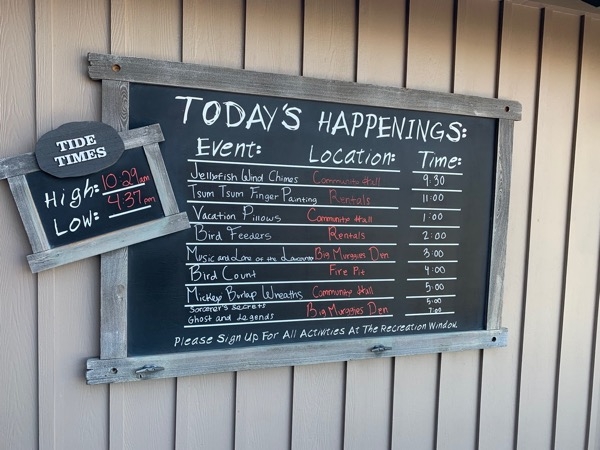 TODAY'S HAPPENINGS:
Event: Location: Time:
Jellyfish Wind Chimes Community Hall 9:30
Tsum Tsum Finger Painting Rentals 11:00
Vacation Pillows Community Hall 1:00
Bird Feeders Rentals 2:00
Music and Lore of the Lowcountry Big Murggies Den 3:00
Bird Count Fire Pit 4:00
Mickey Burlap Wreaths Community Hall 5:00
Sorcerer's Secrets 5:00
Ghost and Legends Big Murggies Den 7:00
Please Sign Up For All Activities At The Recreation Window.
TIDE
TIMES
High: 10:29 am
Low: 4:37 pm